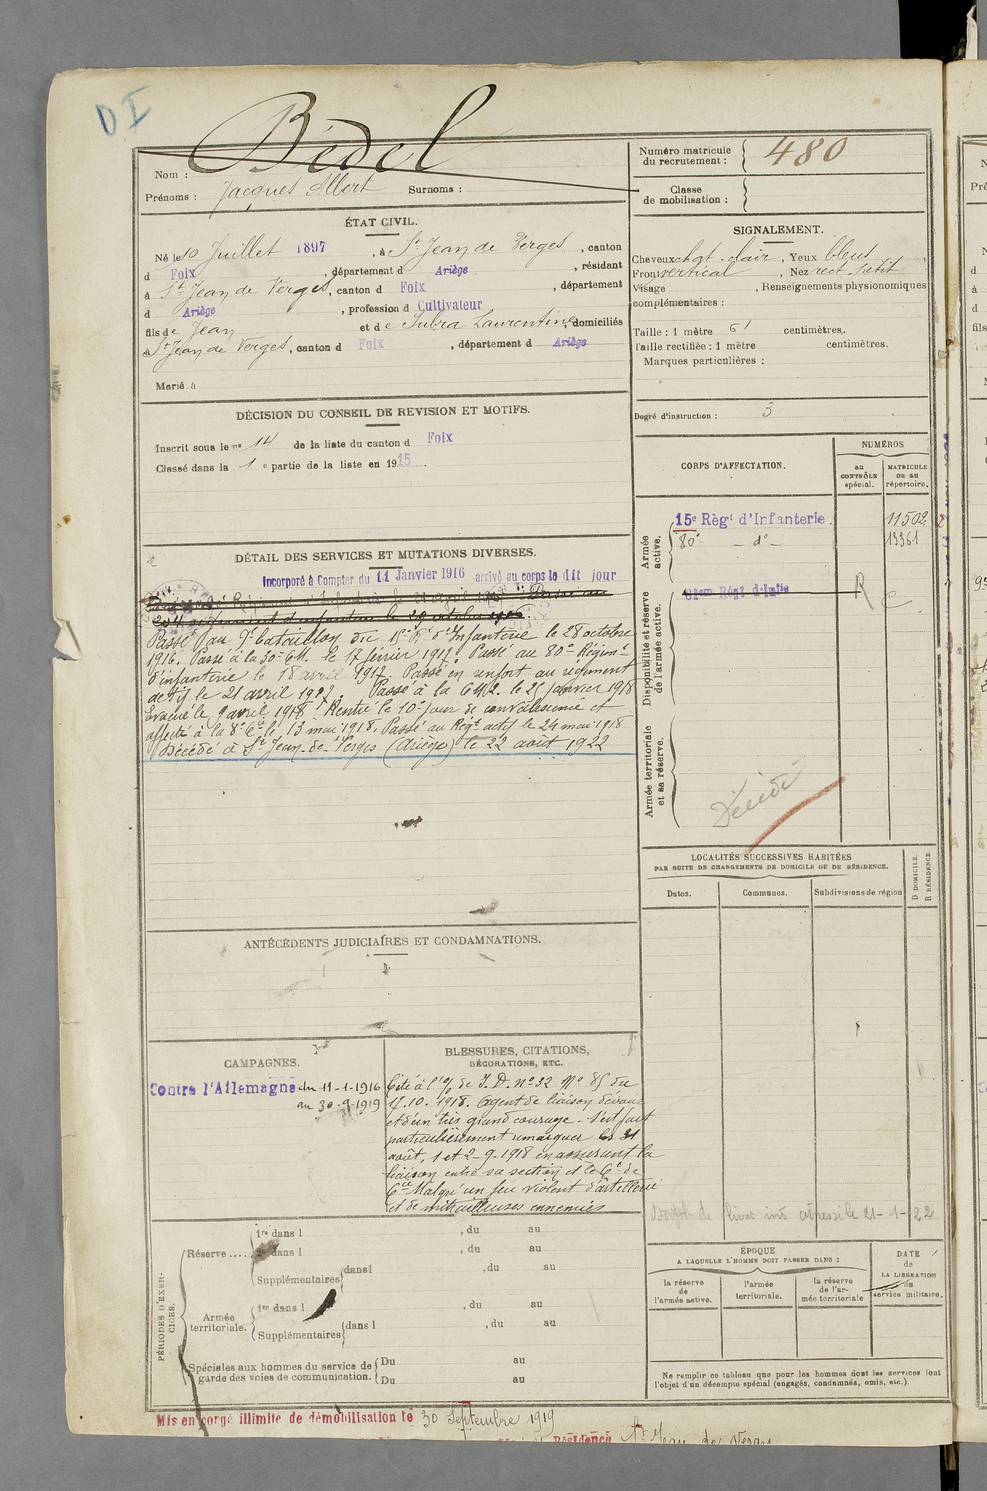 D I
Bédel
Nom :
Prénoms : Jacques Albert Surnoms :
Numéro matricule du recrutement : 480
Classe de mobilisation :
ÉTAT CIVIL.
Né le 10 Juillet 1897, à St Jean de Verges, canton
d Foix, département d Ariège, résidant
à St Jean de Verges, canton d Foix, département
d Ariège, profession d Cultivateur
fils de Jean et de Subra Laurentine, domiciliés
à St Jean de Verges, canton d Foix, département d Ariège
Marié à
SIGNALEMENT.
Cheveux chat. clair, Yeux bleus
Front vertical, Nez rect. petit
Visage , Renseignements physionomiques
complémentaires :
Taille : 1 mètre 61 centimètres.
Taille rectifiée : 1 mètre centimètres.
Marques particulières :
Degré d'instruction : 3
DÉCISION DU CONSEIL DE REVISION ET MOTIFS.
Inscrit sous le no 14 de la liste du canton d Foix
Classé dans la 1 e partie de la liste en 1915.
CORPS D'AFFECTATION.
NUMÉROS
au CONTRÔLE spécial.
MATRICULE ou au répertoire.
Armée active.
15e Régt d'Infanterie 11502
80e - do - 13361
Disponibilité et réserve de l'armée active.
81em Régt d'Infie R
Armée territoriale et sa réserve.
Décédé
DÉTAIL DES SERVICES ET MUTATIONS DIVERSES.
Incorporé à Compter du 11 Janvier 1916 arrivé au corps le dit jour
Passé au 9e bataillon du 15e Rt d'Infanterie le 28 octobre
1916. Passé à la 30e CM. le 17 février 1917. Passé au 80e Régimt
d'infanterie le 18 avril 1917. Passé en renfort au régiment
actif le 21 avril 1917. Passé à la CM2. le 25 janvier 1918
Evacué le 9 avril 1918 Rentré le 10 jour de convalescence et
affecté à la 8e Cie le 13 mai 1918. Passé au Régt actif le 24 mai 1918
Décédé à St Jean-de-Verges (Ariège) le 22 août 1922
LOCALITÉS SUCCESSIVES HABITÉES
PAR SUITE DE CHANGEMENTS DE DOMICILE OU DE RÉSIDENCE.
Dates.
Communes.
Subdivisions de région
D DOMICILE.
R RÉSIDENCE
ANTÉCÉDENTS JUDICIAIRES ET CONDAMNATIONS.
CAMPAGNES.
Contre l'Allemagne du 11-1-1916
au 30-9-1919
BLESSURES, CITATIONS,
DÉCORATIONS, ETC.
Cité à l'o/ de I.D. no 32 No 85 du
17.10.1918. Agent de liaison dévoué
et d'un très grand courage. S'est fait
particulièrement remarquer les 31
août, 1 et 2-9-1918 en assurant la
liaison entre sa section et le Ct de
Cie Malgré un feu violent d'artillerie
et de mitrailleuses ennemies
livret adressé le 21-1-22
PÉRIODES D'EXERCICES.
Réserve....
1re dans l , du au
2e dans l , du au
Supplémentaires dans l , du au
Armée territoriale.
1re dans l , du au
Supplémentaires dans l , du au
Spéciales aux hommes du service de garde des voies de communication.
Du au
Du au
ÉPOQUE
A LAQUELLE L'HOMME DOIT PASSER DANS :
la réserve de l'armée active.
l'armée territoriale.
la réserve de l'armée territoriale
DATE de LA LIBÉRATION du service militaire.
Ne remplir ce tableau que pour les hommes dont les services font
l'objet d'un décompte spécial (engagés, condamnés, omis, etc.).
Mis en congé illimité de démobilisation le 30 Septembre 1919
Résidence St Jean de Verges